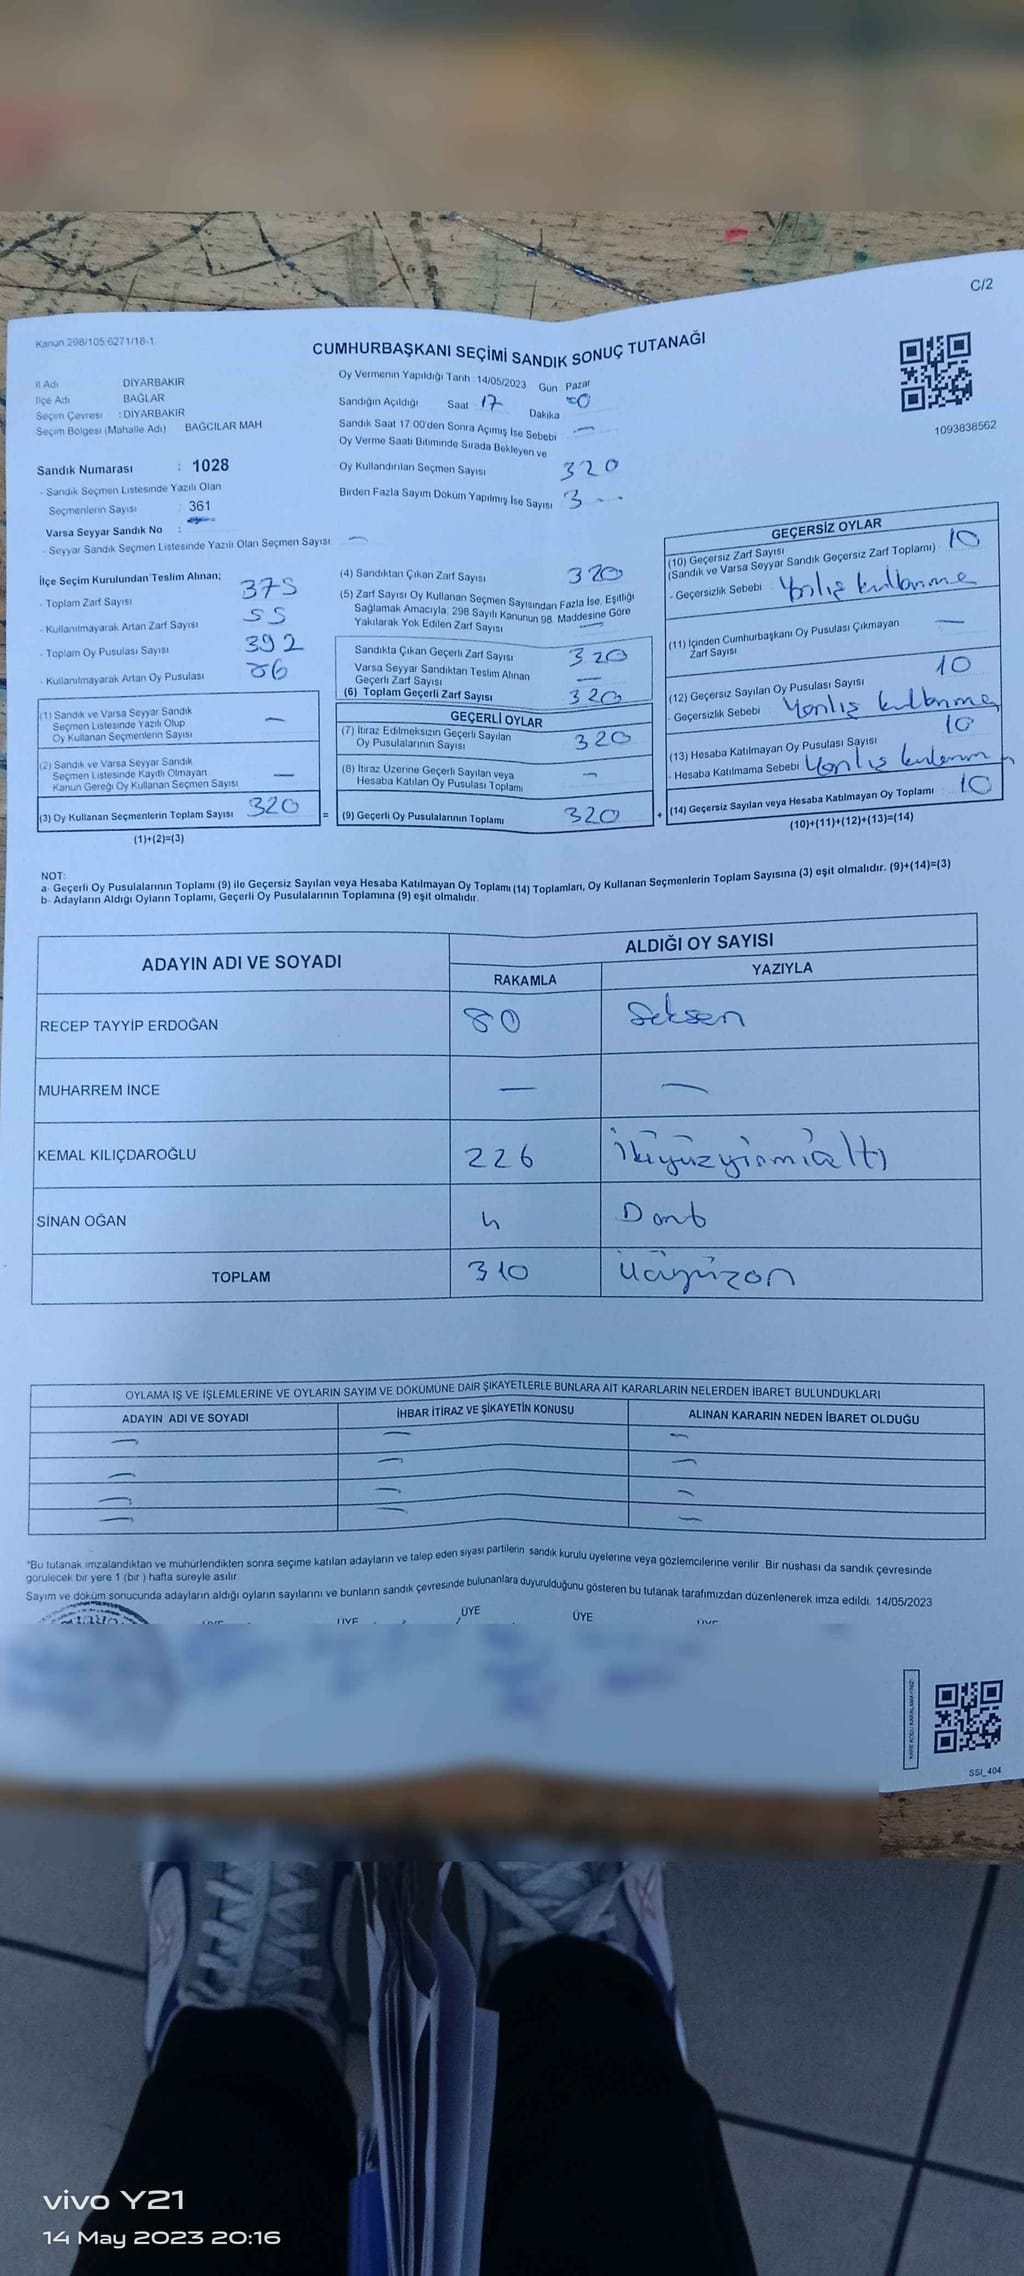 C/2
Kanun 298/105,6271/18-1
CUMHURBAŞKANI SEÇİMİ SANDIK SONUÇ TUTANAĞI
1093838562
İl Adı DİYARBAKIR
İlçe Adı BAĞLAR
Seçim Çevresi : DİYARBAKIR
Seçim Bölgesi (Mahalle Adı) BAĞCILAR MAH.
Sandık Numarası : 1028
- Sandık Seçmen Listesinde Yazılı Olan
Seçmenlerin Sayısı : 361
Varsa Seyyar Sandık No :
- Seyyar Sandık Seçmen Listesinde Yazılı Olan Seçmen Sayısı —
Oy Vermenin Yapıldığı Tarih 14/05/2023 Gün Pazar
Sandığın Açıldığı Saat 17 Dakika
Sandık Saat 17:00'den Sonra Açımış İse Sebebi —
Oy Verme Saati Bitiminde Sırada Bekleyen ve
Oy Kullandırılan Seçmen Sayısı 320
Birden Fazla Sayım Döküm Yapılmış İse Sayısı 3
İlçe Seçim Kurulundan Teslim Alınan;
- Toplam Zarf Sayısı 375
- Kullanılmayarak Artan Zarf Sayısı 55
- Toplam Oy Pusulası Sayısı 392
- Kullanılmayarak Artan Oy Pusulası
(1) Sandık ve Varsa Seyyar Sandık
Seçmen Listesinde Yazılı Olup
Oy Kullanan Seçmenlerin Sayısı —
(2) Sandık ve Varsa Seyyar Sandık
Seçmen Listesinde Kayıtlı Olmayan
Kanun Gereği Oy Kullanan Seçmen Sayısı —
(3) Oy Kullanan Seçmenlerin Toplam Sayısı 320
(1)+(2)=(3)
=
(4) Sandıktan Çıkan Zarf Sayısı 320
(5) Zarf Sayısı Oy Kullanan Seçmen Sayısından Fazla İse, Eşitliği
Sağlamak Amacıyla, 298 Sayılı Kanunun 98. Maddesine Göre
Yakılarak Yok Edilen Zarf Sayısı —
Sandıkta Çıkan Geçerli Zarf Sayısı 320
Varsa Seyyar Sandıktan Teslim Alınan
Geçerli Zarf Sayısı —
(6) Toplam Geçerli Zarf Sayısı 320
GEÇERLİ OYLAR
(7) İtiraz Edilmeksizin Geçerli Sayılan
Oy Pusulalarının Sayısı 320
(8) İtiraz Üzerine Geçerli Sayılan veya
Hesaba Katılan Oy Pusulası Toplamı —
(9) Geçerli Oy Pusulalarının Toplamı 320
+
GEÇERSİZ OYLAR
(10) Geçersiz Zarf Sayısı
(Sandık ve Varsa Seyyar Sandık Geçersiz Zarf Toplamı) 10
- Geçersizlik Sebebi : Yanlış kullanma
(11) İçinden Cumhurbaşkanı Oy Pusulası Çıkmayan
Zarf Sayısı —
(12) Geçersiz Sayılan Oy Pusulası Sayısı 10
- Geçersizlik Sebebi : Yanlış kullanma
(13) Hesaba Katılmayan Oy Pusulası Sayısı 10
- Hesaba Katılmama Sebebi : Yanlış
(14) Geçersiz Sayılan veya Hesaba Katılmayan Oy Toplamı : 10
(10)+(11)+(12)+(13)=(14)
NOT:
a- Geçerli Oy Pusulalarının Toplamı (9) ile Geçersiz Sayılan veya Hesaba Katılmayan Oy Toplamı (14) Toplamları, Oy Kullanan Seçmenlerin Toplam Sayısına (3) eşit olmalıdır. (9)+(14)=(3)
b- Adayların Aldığı Oyların Toplamı, Geçerli Oy Pusulalarının Toplamına (9) eşit olmalıdır.
ADAYIN ADI VE SOYADI ALDIĞI OY SAYISI
RAKAMLA YAZIYLA
RECEP TAYYİP ERDOĞAN 80 Seksen
MUHARREM İNCE — —
KEMAL KILIÇDAROĞLU 226 İkiyüzyirmialtı
SİNAN OĞAN 4
TOPLAM 310 Üçyüzon
OYLAMA İŞ VE İŞLEMLERİNE VE OYLARIN SAYIM VE DÖKÜMÜNE DAİR ŞİKAYETLERLE BUNLARA AİT KARARLARIN NELERDEN İBARET BULUNDUKLARI
ADAYIN ADI VE SOYADI İHBAR İTİRAZ VE ŞİKAYETİN KONUSU ALINAN KARARIN NEDEN İBARET OLDUĞU
— — —
— — —
— — —
— — —
*Bu tutanak imzalandıktan ve mühürlendikten sonra seçime katılan adayların ve talep eden siyasi partilerin sandık kurulu üyelerine veya gözlemcilerine verilir. Bir nüshası da sandık çevresinde
görülecek bir yere 1 (bir) hafta süreyle asılır.
Sayım ve döküm sonucunda adayların aldığı oyların sayılarını ve bunların sandık çevresinde bulunanlara duyurulduğunu gösteren bu tutanak tarafımızdan düzenlenerek imza edildi. 14/05/2023
ÜYE ÜYE ÜYE ÜYE ÜYE
KARE KODU KARALAMAYINIZ!
SSI_404
vivo Y21
14 May 2023 20:16